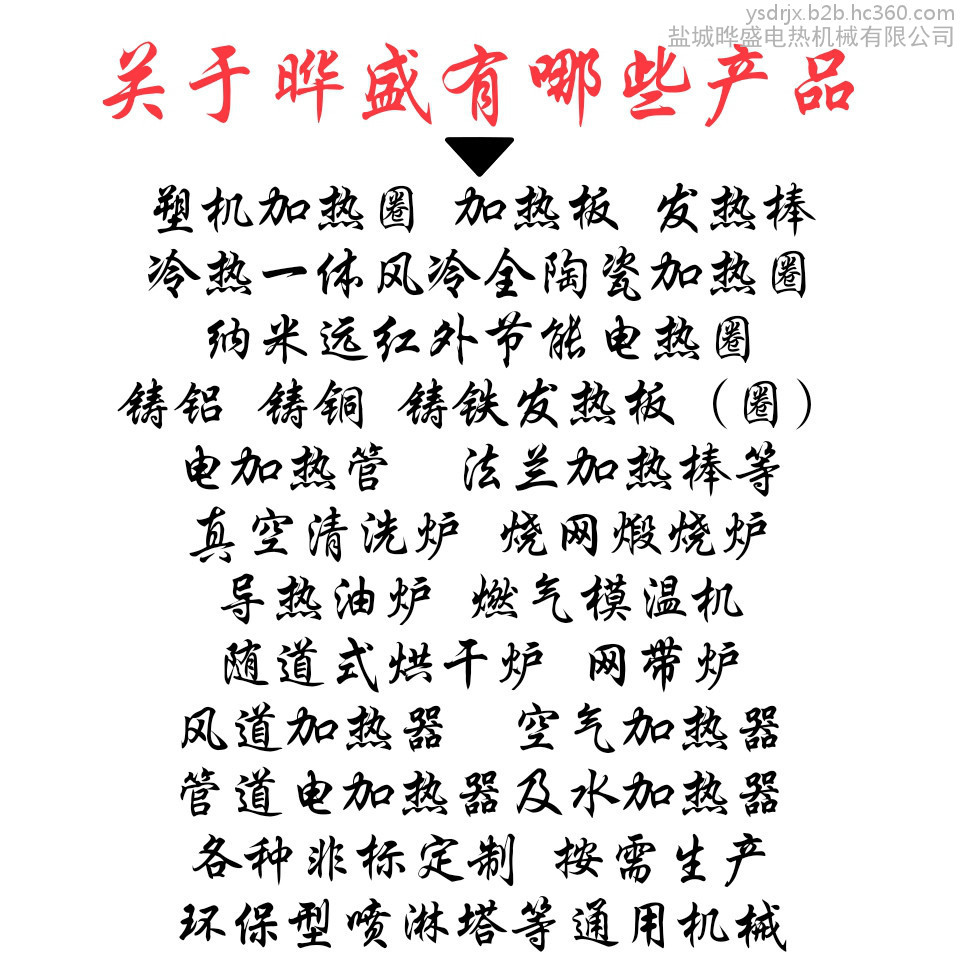 ysdrjx.b2b.hc360.com
盐城晔盛电热机械有限公司
关于晔盛有哪些产品
塑机加热圈 加热板 发热棒
冷热一体风冷全陶瓷加热圈
纳米远红外节能电热圈
铸铝 铸铜 铸铁发热板（圈）
电加热管 法兰加热棒等
真空清洗炉 烧网煅烧炉
导热油炉 燃气模温机
随道式烘干炉 网带炉
风道加热器 空气加热器
管道电加热器及水加热器
各种非标定制 按需生产
环保型喷淋塔等通用机械